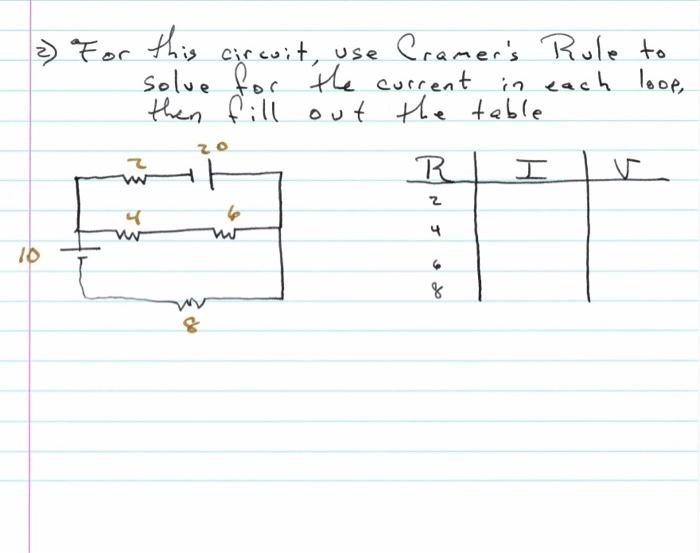 2) For this circuit, use Cramer's Rule to
solve for the current in each loop,
then fill out the table
20
2
4 6
10
8
R I V
2
4
6
8